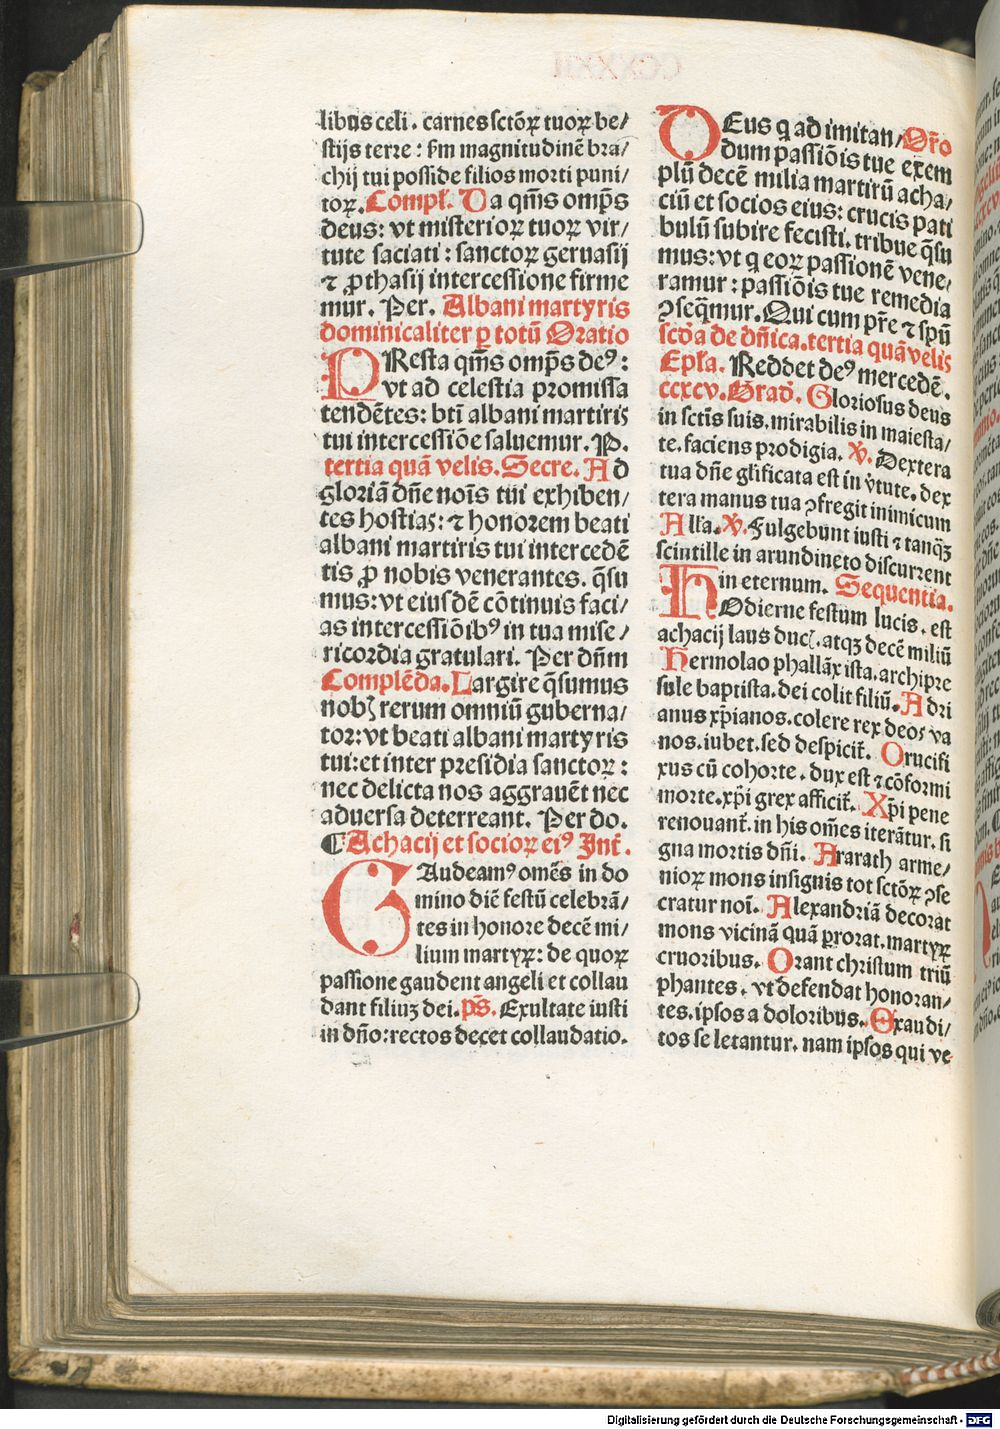 libus celi. carnes sctōꝝ tuoꝝ be/
stijs terre: ẜm magnitudinē bra/
chij tui posside filios morti puni/
toꝝ. Compl. Da qm̄s omp̄s
deus: vt misterioꝝ tuoꝝ vir/
tute saciati: sanctoꝝ geruasij
⁊ ꝓthasij intercessione firme
mur. Per. Albani martyris
dominicaliter ꝑ totū Oratio
PResta qm̄s omp̄s deꝰ:
vt ad celestia promissa
tendētes: bt̄i albani martiris
tui intercessiōe saluemur. P.
tertia quā velis. Secre. Ad
gloriā dn̄e noīs tui exhiben/
tes hostias: ⁊ honorem beati
albani martiris tui intercedē
tis ꝓ nobis venerantes. q̄su
mus: vt eiusdē cōtinuis faci/
as intercessiōibꝰ in tua mise/
ricordia gratulari. Per dn̄m
Complēda. Largire q̄sumus
nobꝫ rerum omniū guberna/
tor: vt beati albani martyris
tui: et inter presidia sanctoꝝ:
nec delicta nos aggrauēt nec
aduersa deterreant. Per do.
¶ Achacij et socioꝝ eiꝰ Int̄.
GAudeamꝰ omēs in do
mino diē festū celebrā/
tes in honore decē mi/
lium martyꝝ: de quoꝝ
passione gaudent angeli et collau
dant filiuꝫ dei. ps̄. Exultate iusti
in dn̄o: rectos decet collaudatio.
DEus q ad imitan/ Or̄o
dum passiōis tue exem
plū decē milia martirū acha/
ciū et socios eius: crucis pati
bulū subire fecisti. tribue q̄su
mus: vt q eoꝝ passionē vene/
ramur: passiōis tue remedia
ꝯseq̄mur. Qui cum pr̄e ⁊ spū
sctō̄a de dn̄ica. tertia quā velis
Epl̄a. Reddet deꝰ mercedē.
ccxcv. Grad̄. Gloriosus deus
in sctīs suis. mirabilis in maiesta/
te. faciens prodigia. ℣. Dextera
tua dn̄e glificata est in v̄tute. dex
tera manus tua ꝯfregit inimicum
All̄a. ℣. Fulgebunt iusti ⁊ tanqꝫ
scintille in arundineto discurrent
in eternum. Sequentia.
HOdierne festum lucis. est
achacij laus ducꝭ. atqꝫ decē miliū
Hermolao phallāx ista. archipre
sule baptista. dei colit filiū. Adri
anus xp̄ianos. colere rex deos va
nos. iubet. sed despicit̄. Crucifi
xus cū cohorte. dux est ⁊ cōformi
morte. xp̄i grex afficit̄. Xp̄i pene
renouant̄. in his om̄es iterātur. si
gna mortis dn̄i. Ararath arme/
nioꝝ mons insignis tot sctōꝝ ꝯse
cratur noī. Alexandriā decorat
mons vicinā quā ꝓrorat. martyꝝ
cruoribus. Orant christum triū
phantes. vt defendat honoran/
tes. ipsos a doloribus. Exaudi/
tos se letantur. nam ipsos qui ve
Digitalisierung gefördert durch die Deutsche Forschungsgemeinschaft - DFG